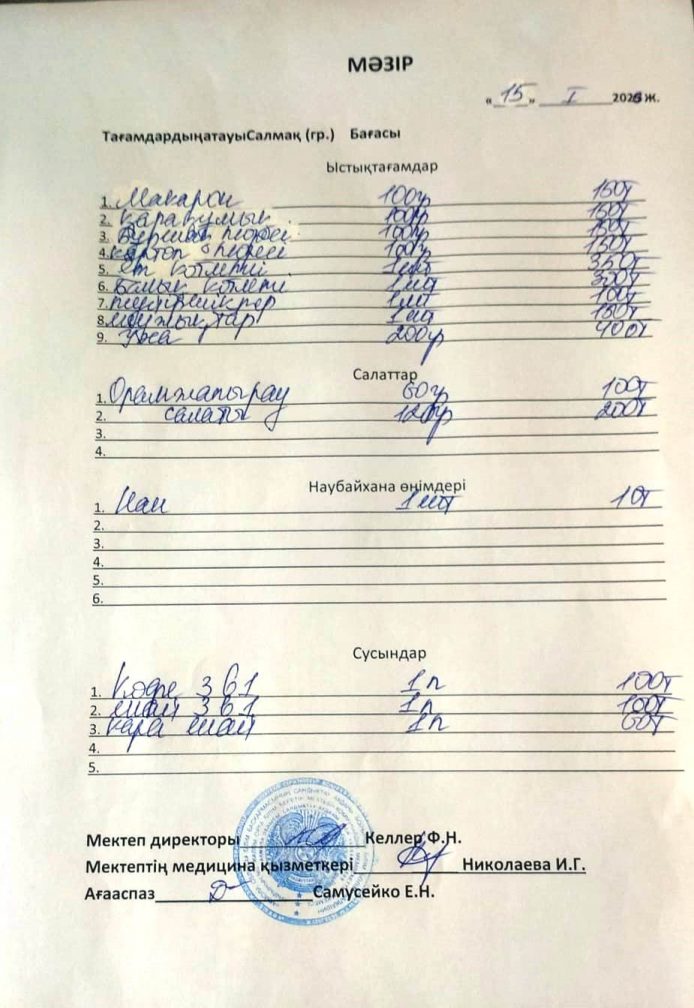 МӘЗІР
«15» I 2026 Ж.
ТағамдардыңатауыСалмақ (гр.) Бағасы
Ыстықтағамдар
1. Макарон 100гр 150т
2. қарақұмық 100гр 150т
3. бұршақ пюреси 100гр 150т
4. картоп пюреси 100гр 150т
5. ет котлетті 1шт 350т
6. балық котлеті 1шт 350т
7. 1шт 100т
8. 1шт 150т
9. Ұха 200гр 400т
Салаттар
1. Орамжапырау 60гр 100т
2. салаты 120гр 200т
3.
4.
Наубайхана өнімдері
1. Нан 1шт 10т
2.
3.
4.
5.
6.
Сусындар
1. Кофе 3 в 1 1п 100т
2. шай 3 в 1 1п 100т
3. қара шай 1п 60т
4.
5.
Мектеп директоры Келлер Ф.Н.
Мектептің медицина қызметкері Николаева И.Г.
Ағааспаз Самусейко Е.Н.